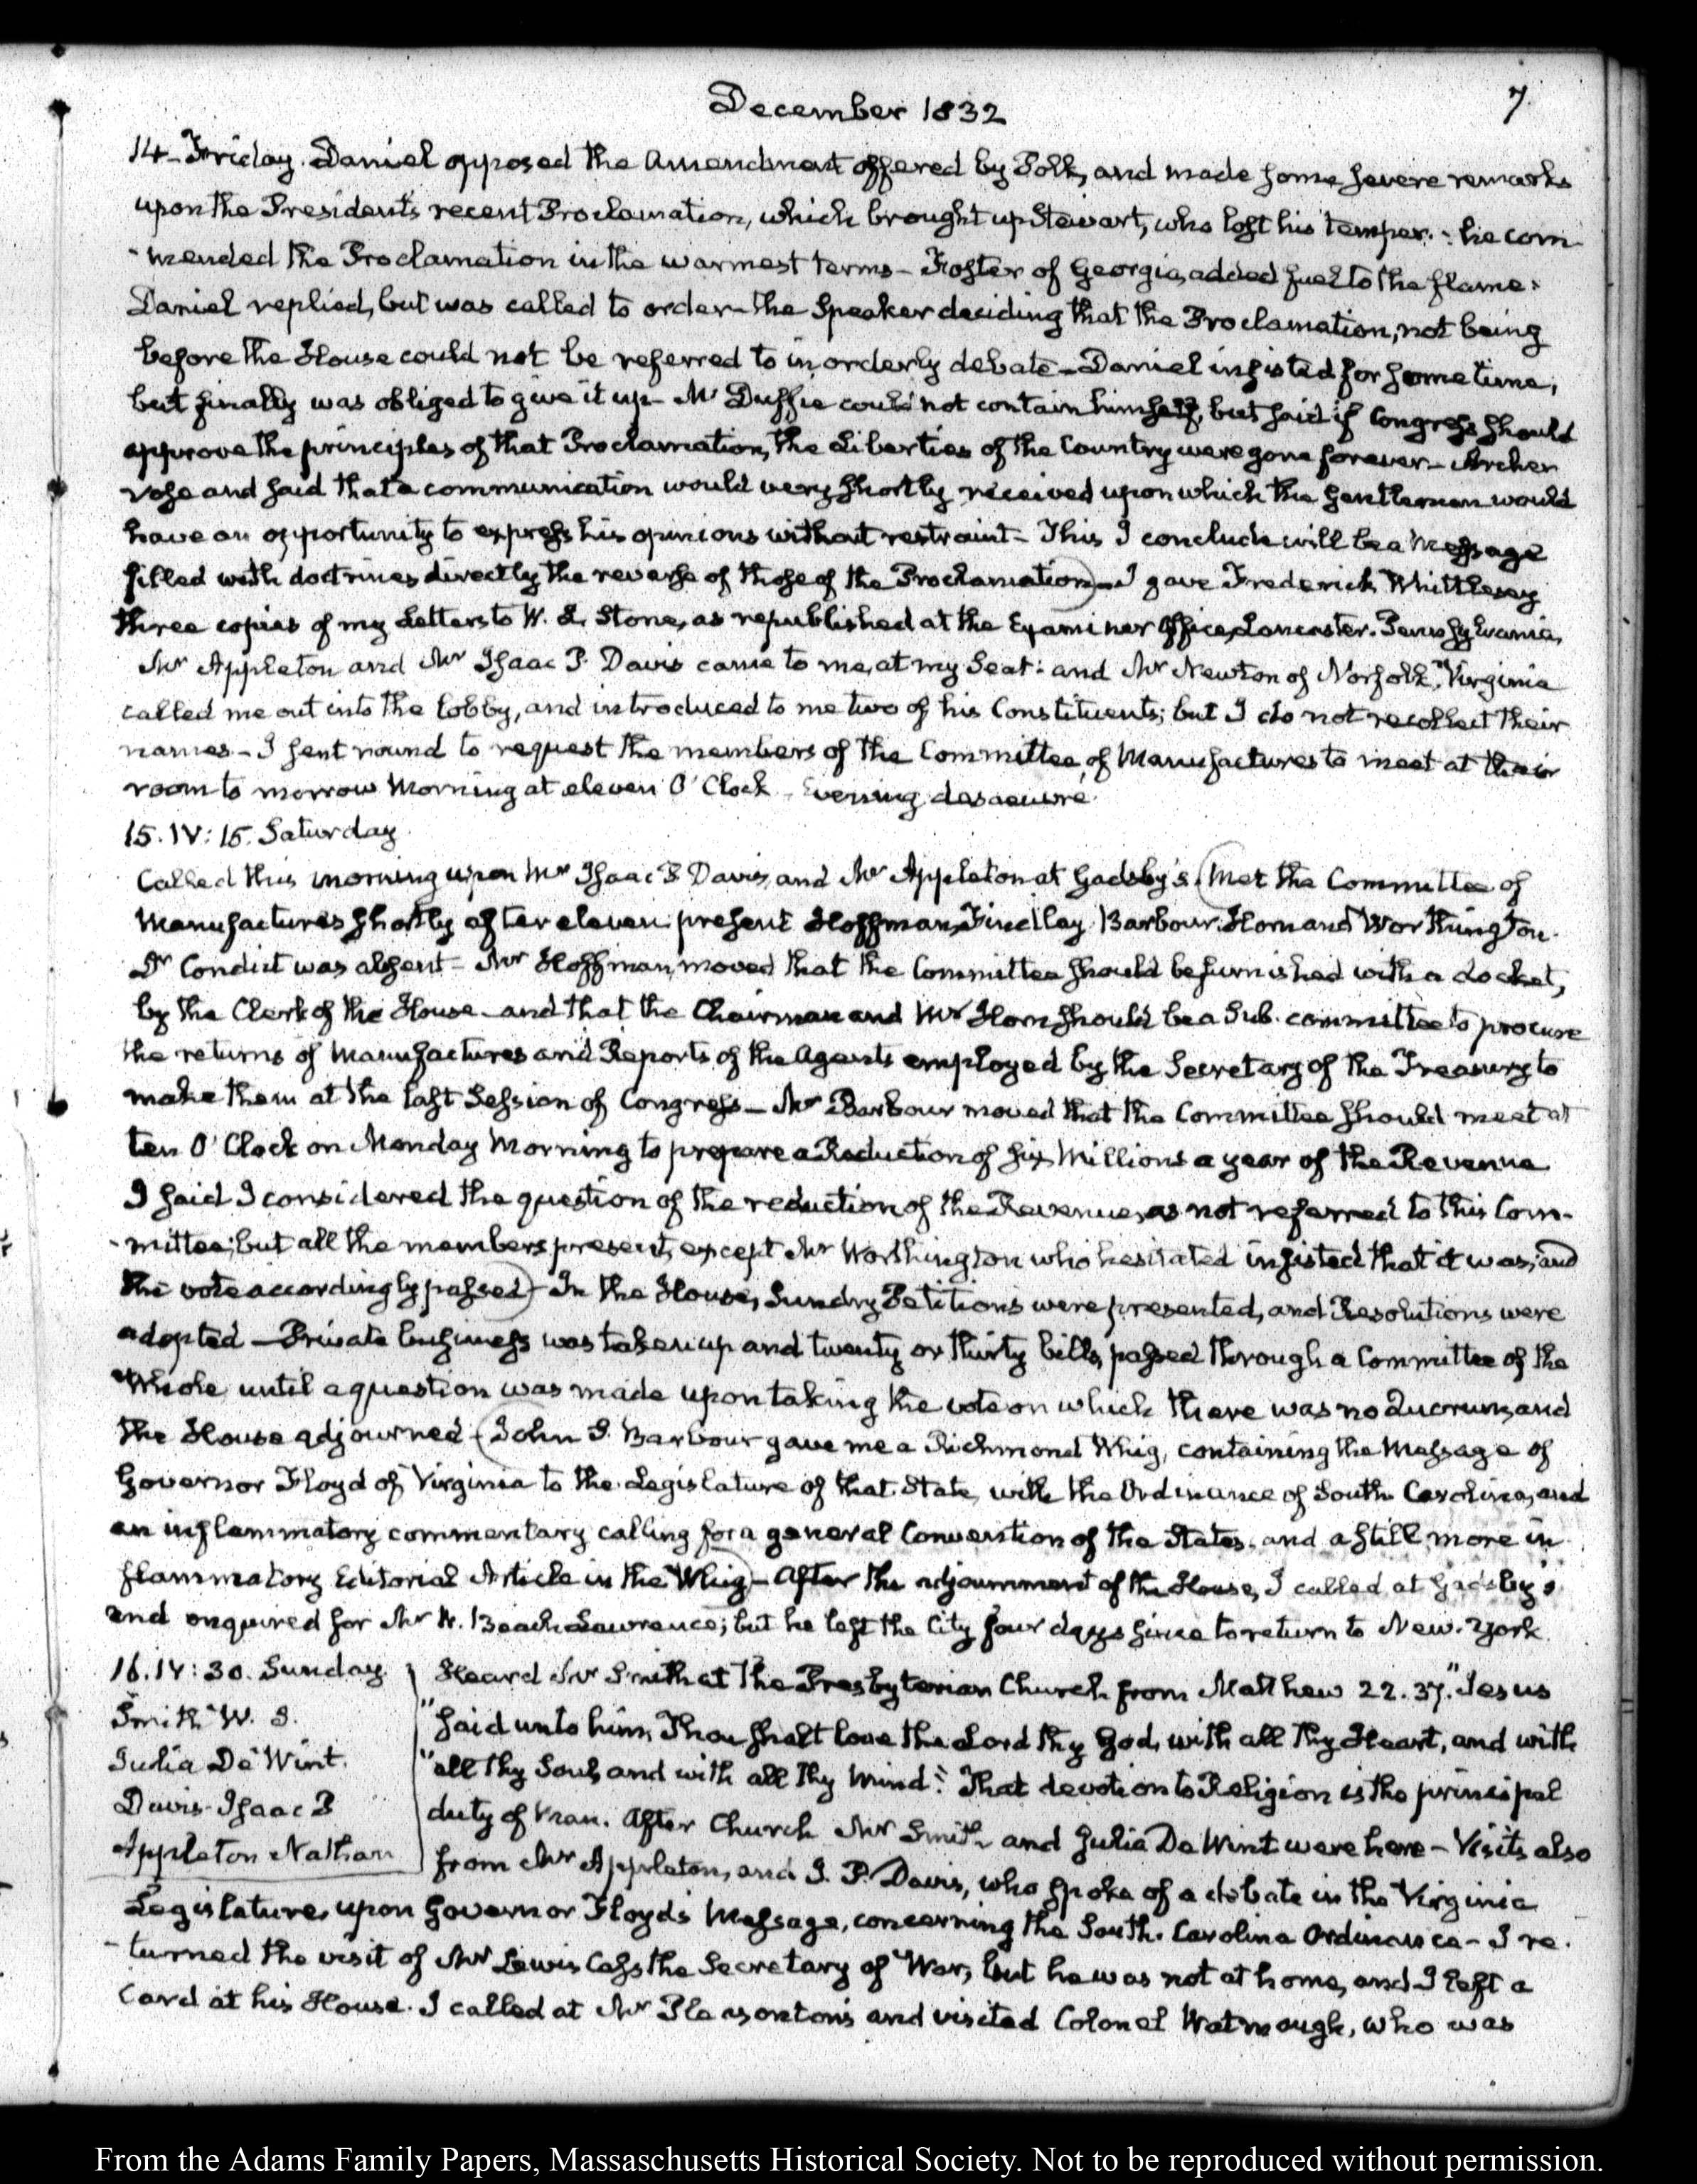 December 1832
7.
14. Friday. Daniel opposed the Amendment offered by Polk, and made some severe remarks
upon the President's recent Proclamation, which brought up Stewart, who lost his temper.: he com-
-mended the Proclamation in the warmest terms - Foster of Georgia, added fuel to the flame:
Daniel replied, but was called to order - the Speaker deciding that the Proclamation, not being
before the House could not be referred to in orderly debate - Daniel insisted for some time,
but finally was obliged to give it up - Mc Duffie could not contain himself, but said if Congress should
approve the principles of that Proclamation, the Liberties of the Country were gone forever - Archer
rose and said that a communication would very shortly received upon which the Gentleman would
have an opportunity to express his opinions without restraint - This I conclude will be a Message
filled with doctrines directly the reverse of those of the Proclamation) - I gave Frederick Whittlesey
three copies of my Letters to W. L. Stone, as republished at the Examiner Office, Lancaster. Pennsylvania,
Mr Appleton and Mr Isaac P. Davis came to me, at my Seat: and Mr Newton of Norfolk, Virginia
called me out into the lobby, and introduced to me two of his Constituents; but I do not recollect their
names - I sent round to request the members of the Committee, of Manufactures to meet at their
room to morrow Morning at eleven O'Clock - Evening desoeuvré.
15. IV: 15. Saturday.
Called this morning upon Mr Isaac P Davis, and Mr Appleton at Gadsby's. (Met the Committee of
Manufactures shortly after eleven present Hoffman, Findlay. Barbour. Horn and Worthington.
Dr Condict was absent - Mr Hoffman, moved that the Committee should be furnished with a docket,
by the Clerk of the House - and that the Chairman and Mr Horn should be a Sub. committee to procure
the returns of Manufactures and Reports of the Agents employed by the Secretary of the Treasury to
make them at the last Session of Congress - Mr Barbour moved that the Committee should meet at
ten O'Clock on Monday Morning to prepare a Reduction of six Millions a year of the Revenue
I said I considered the question of the reduction of the Revenue, as not referred to this Com-
-mittee; but all the members present, except Mr Worthington who hesitated insisted that it was; and
the vote accordingly passed) - In the House, Sundry Petitions were presented, and Resolutions were
adopted - Private business was taken up and twenty or thirty bills, passed through a Committee of the
Whole until a question was made upon taking the vote on which there was no Quorum, and
the House adjourned - (John S. Barbour gave me a Richmond Whig, containing the Message of
Governor Floyd of Virginia to the Legislature of that State, with the Ordinance of South Carolina, and
an inflammatory commentary calling for a general Convention of the States. and a still more in
flammatory Editorial Article in the Whig) - After the adjournment of the House, I called at Gadsby's
and enquired for Mr W. Beach Lawrence; but he left the City four days since to return to New-York.
16. IV: 30. Sunday.
Smith W. S.
Julia De Wint.
Davis - Isaac P
Appleton Nathan
Heard Mr Smith at the Presbyterian Church from Matthew 22. 37. "Jesus
"said unto him, Thou shalt love the Lord thy God, with all thy Heart, and with
"all thy Soul, and with all thy Mind." That devotion to Religion is the principal
duty of man. After Church Mr Smith and Julia De Wint were here - Visits also
from Mr Appleton, and I. P. Davis, who spoke of a debate in the Virginia
Legislature, upon Governor Floyd's Message, concerning the South. Carolina Ordinance - I re-
-turned the visit of Mr Lewis Cass the Secretary of War, but he was not at home, and I left a
Card at his House. I called at Mr Pleasonton's and visited Colonel Watmough, who was
From the Adams Family Papers, Massachusetts Historical Society. Not to be reproduced without permission.